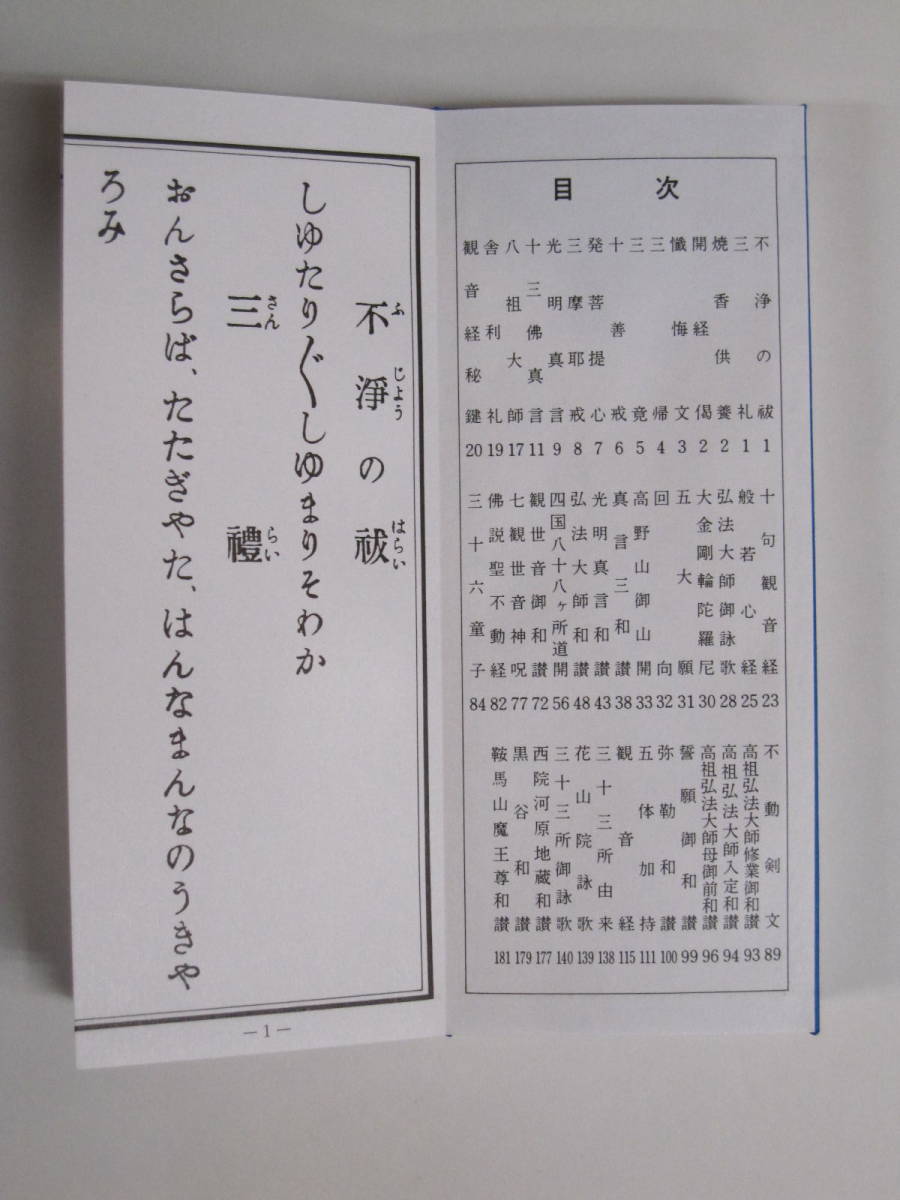 目次
不浄の祓 1
三礼 1
焼香供養 2
開経偈 2
懺悔文 3
三帰 4
三竟 5
十善戒 6
発菩提心 7
三摩耶戒 8
光明真言 9
十三佛真言 11
八祖大師 17
舎利礼 19
観音経秘鍵 20
十句観音経 23
般若心経 25
弘法大師御詠歌 28
大金剛輪陀羅尼 30
五大願 31
回向 32
高野山御山開 33
真言三和讃 38
光明真言和讃 43
弘法大師和讃 48
四国八十八ヶ所道開 56
観世音御和讃 72
七観世音神呪 77
佛説聖不動経 82
三十六童子 84
不動剣文 89
高祖弘法大師修業御和讃 93
高祖弘法大師入定和讃 94
高祖弘法大師母御前和讃 96
誓願御和讃 99
弥勒和讃 100
五体加持 111
観音経 115
三十三所由来 138
花山院詠歌 139
三十三所御詠歌 140
西院河原地蔵和讃 177
黒谷和讃 179
鞍馬山魔王尊和讃 181
不淨の祓
ふじようはらい
しゆたり〱しゆまりそわか
三禮
さんらい
おんさらば、たたぎやた、はんなまんなのうきや
ろみ
—1—